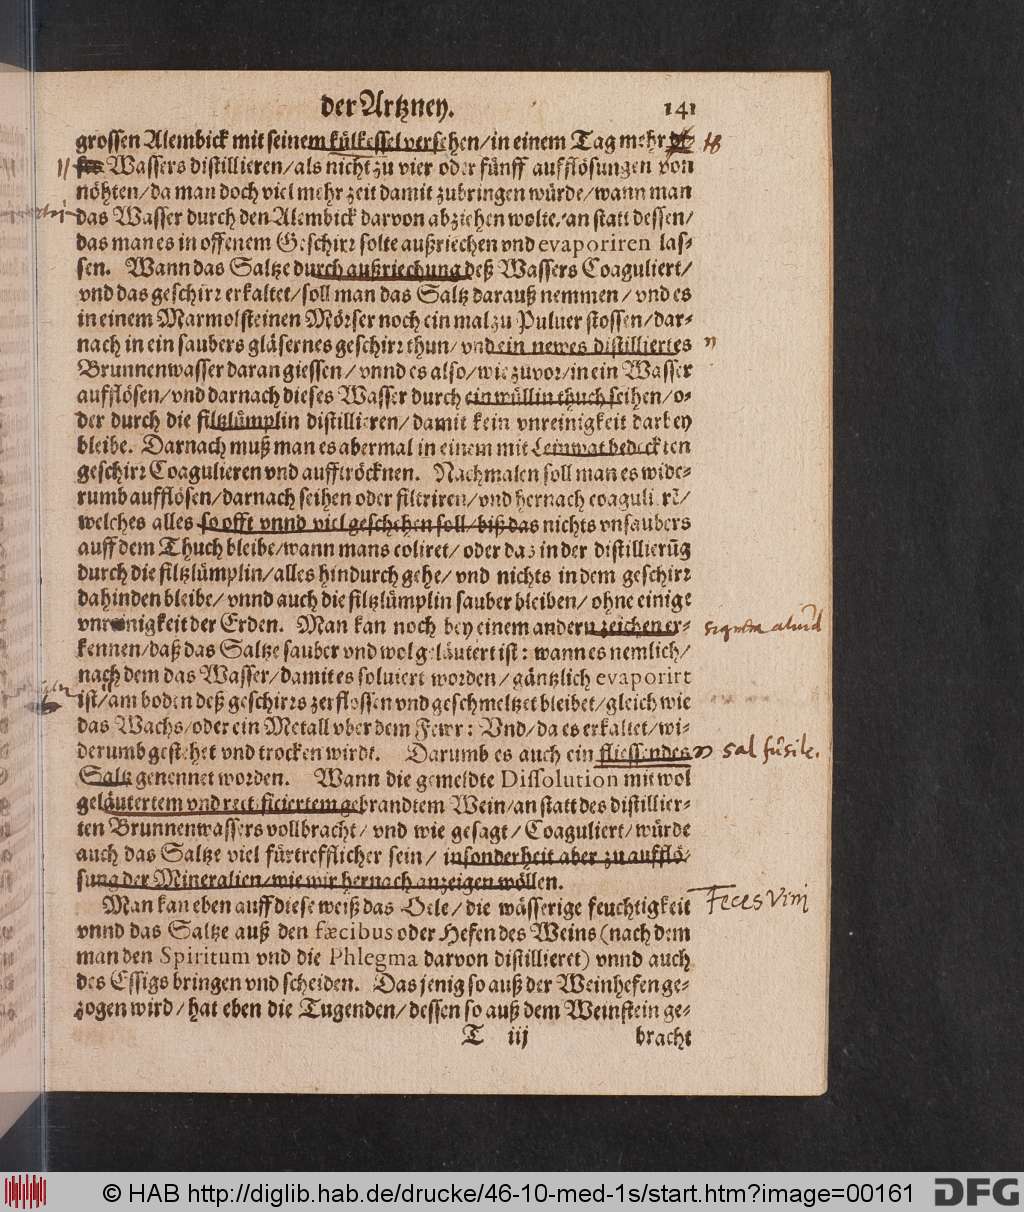 der Artzney. 141
grossen Alembick mit seinem külkessel versehen/in einem Tag mehr
Wassers distillieren/als nicht zu vier oder fünff aufflösungen von
nöhten/da man doch viel mehr zeit damit zubringen würde/wann man
das Wasser durch den Alembick darvon abziehen wolte/an statt dessen/
das man es in offenem Geschirꝛ solte außriechen vnd evaporiren las-
sen. Wann das Saltze durch außriechung deß Wassers Coaguliert/
vnd das geschirꝛ erkaltet/soll man das Saltz darauß nemmen/vnd es
in einem Marmolsteinen Mörser noch ein mal zu Puluer stossen/dar-
nach in ein saubers gläsernes geschirꝛ thun/vnd ein newes distilliertes
Brunnenwasser daran giessen/vnnd es also/wie zuvor/in ein Wasser
aufflösen/vnd darnach dieses Wasser durch ein wüllin thuch seihen/o-
der durch die filtzlümplin distillieren/damit kein vnreinigkeit darbey
bleibe. Darnach muß man es abermal in einem mit Leinwat bedeckten
geschirꝛ Coagulieren vnd aufftröcknen. Nachmalen soll man es wide-
rumb aufflösen/darnach seihen oder filtriren/vnd hernach coagulirē/
welches alles so offt vnnd viel geschehen soll/biß das nichts vnsaubers
auff dem Thuch bleibe/wann mans coliret/oder daz in der distillierūg
durch die filtzlümplin/alles hindurch gehe/vnd nichts in dem geschirꝛ
dahinden bleibe/vnnd auch die filtzlümplin sauber bleiben/ohne einige
vnreinigkeit der Erden. Man kan noch bey einem andern zeichen er-
kennen/daß das Saltze sauber vnd wol geläutert ist: wann es nemlich/
nach dem das Wasser/damit es soluiert worden/gäntzlich evaporirt
ist/am boden deß geschirꝛs zerflossen vnd geschmeltzet bleibet/gleich wie
das Wachs/oder ein Metall vber dem Fewr: Vnd/da es erkaltet/wi-
derumb gestehet vnd trocken wirdt. Darumb es auch ein fliessendes
sal fusile.
Saltz genennet worden. Wann die gemeldte Dissolution mit wol
geläutertem vnd rectificiertem gebrandtem Wein/an statt des distillier-
ten Brunnenwassers vollbracht/vnd wie gesagt/Coaguliert/würde
auch das Saltze viel fürtrefflicher sein/insonderheit aber zu aufflö-
sung der Mineralien/wie wir hernach anzeigen wöllen.
Man kan eben auff diese weiß das Oele/die wässerige feuchtigkeit
Feces Vini
vnnd das Saltze auß den fæcibus oder Hefen des Weins (nach dem
man den Spiritum vnd die Phlegma darvon distillieret) vnnd auch
des Essigs bringen vnd scheiden. Das jenig so auß der Weinhefen ge-
zogen wird/hat eben die Tugenden/dessen so auß dem Weinstein ge-
T iij bracht
© HAB http://diglib.hab.de/drucke/46-10-med-1s/start.htm?image=00161 DFG